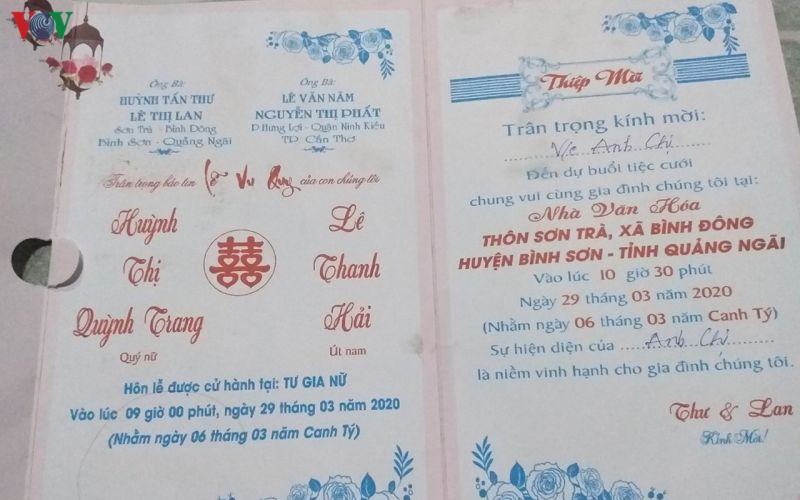 VOV
Ông Bà:
HUỲNH TẤN THƯ
LÊ THỊ LAN
Sơn Trà - Bình Đông
Bình Sơn - Quảng Ngãi
Ông Bà:
LÊ VĂN NĂM
NGUYỄN THỊ PHẤT
P. Hưng Lợi - Quận Ninh Kiều
TP. Cần Thơ
Trân trọng báo tin Lễ Vu Quy của con chúng tôi
Huỳnh
Thị
Quỳnh Trang
Quý nữ
囍
Lê
Thanh
Hải
Út nam
Hôn lễ được cử hành tại: TƯ GIA NỮ
Vào lúc 09 giờ 00 phút, ngày 29 tháng 03 năm 2020
(Nhằm ngày 06 tháng 03 năm Canh Tý)
Thiệp Mời
Trân trọng kính mời:
V/c Anh Chị
Đến dự buổi tiệc cưới
chung vui cùng gia đình chúng tôi tại:
Nhà Văn Hóa
THÔN SƠN TRÀ, XÃ BÌNH ĐÔNG
HUYỆN BÌNH SƠN - TỈNH QUẢNG NGÃI
Vào lúc 10 giờ 30 phút
Ngày 29 tháng 03 năm 2020
(Nhằm ngày 06 tháng 03 năm Canh Tý)
Sự hiện diện của Anh Chị
là niềm vinh hạnh cho gia đình chúng tôi.
Thư & Lan
Kính Mời!